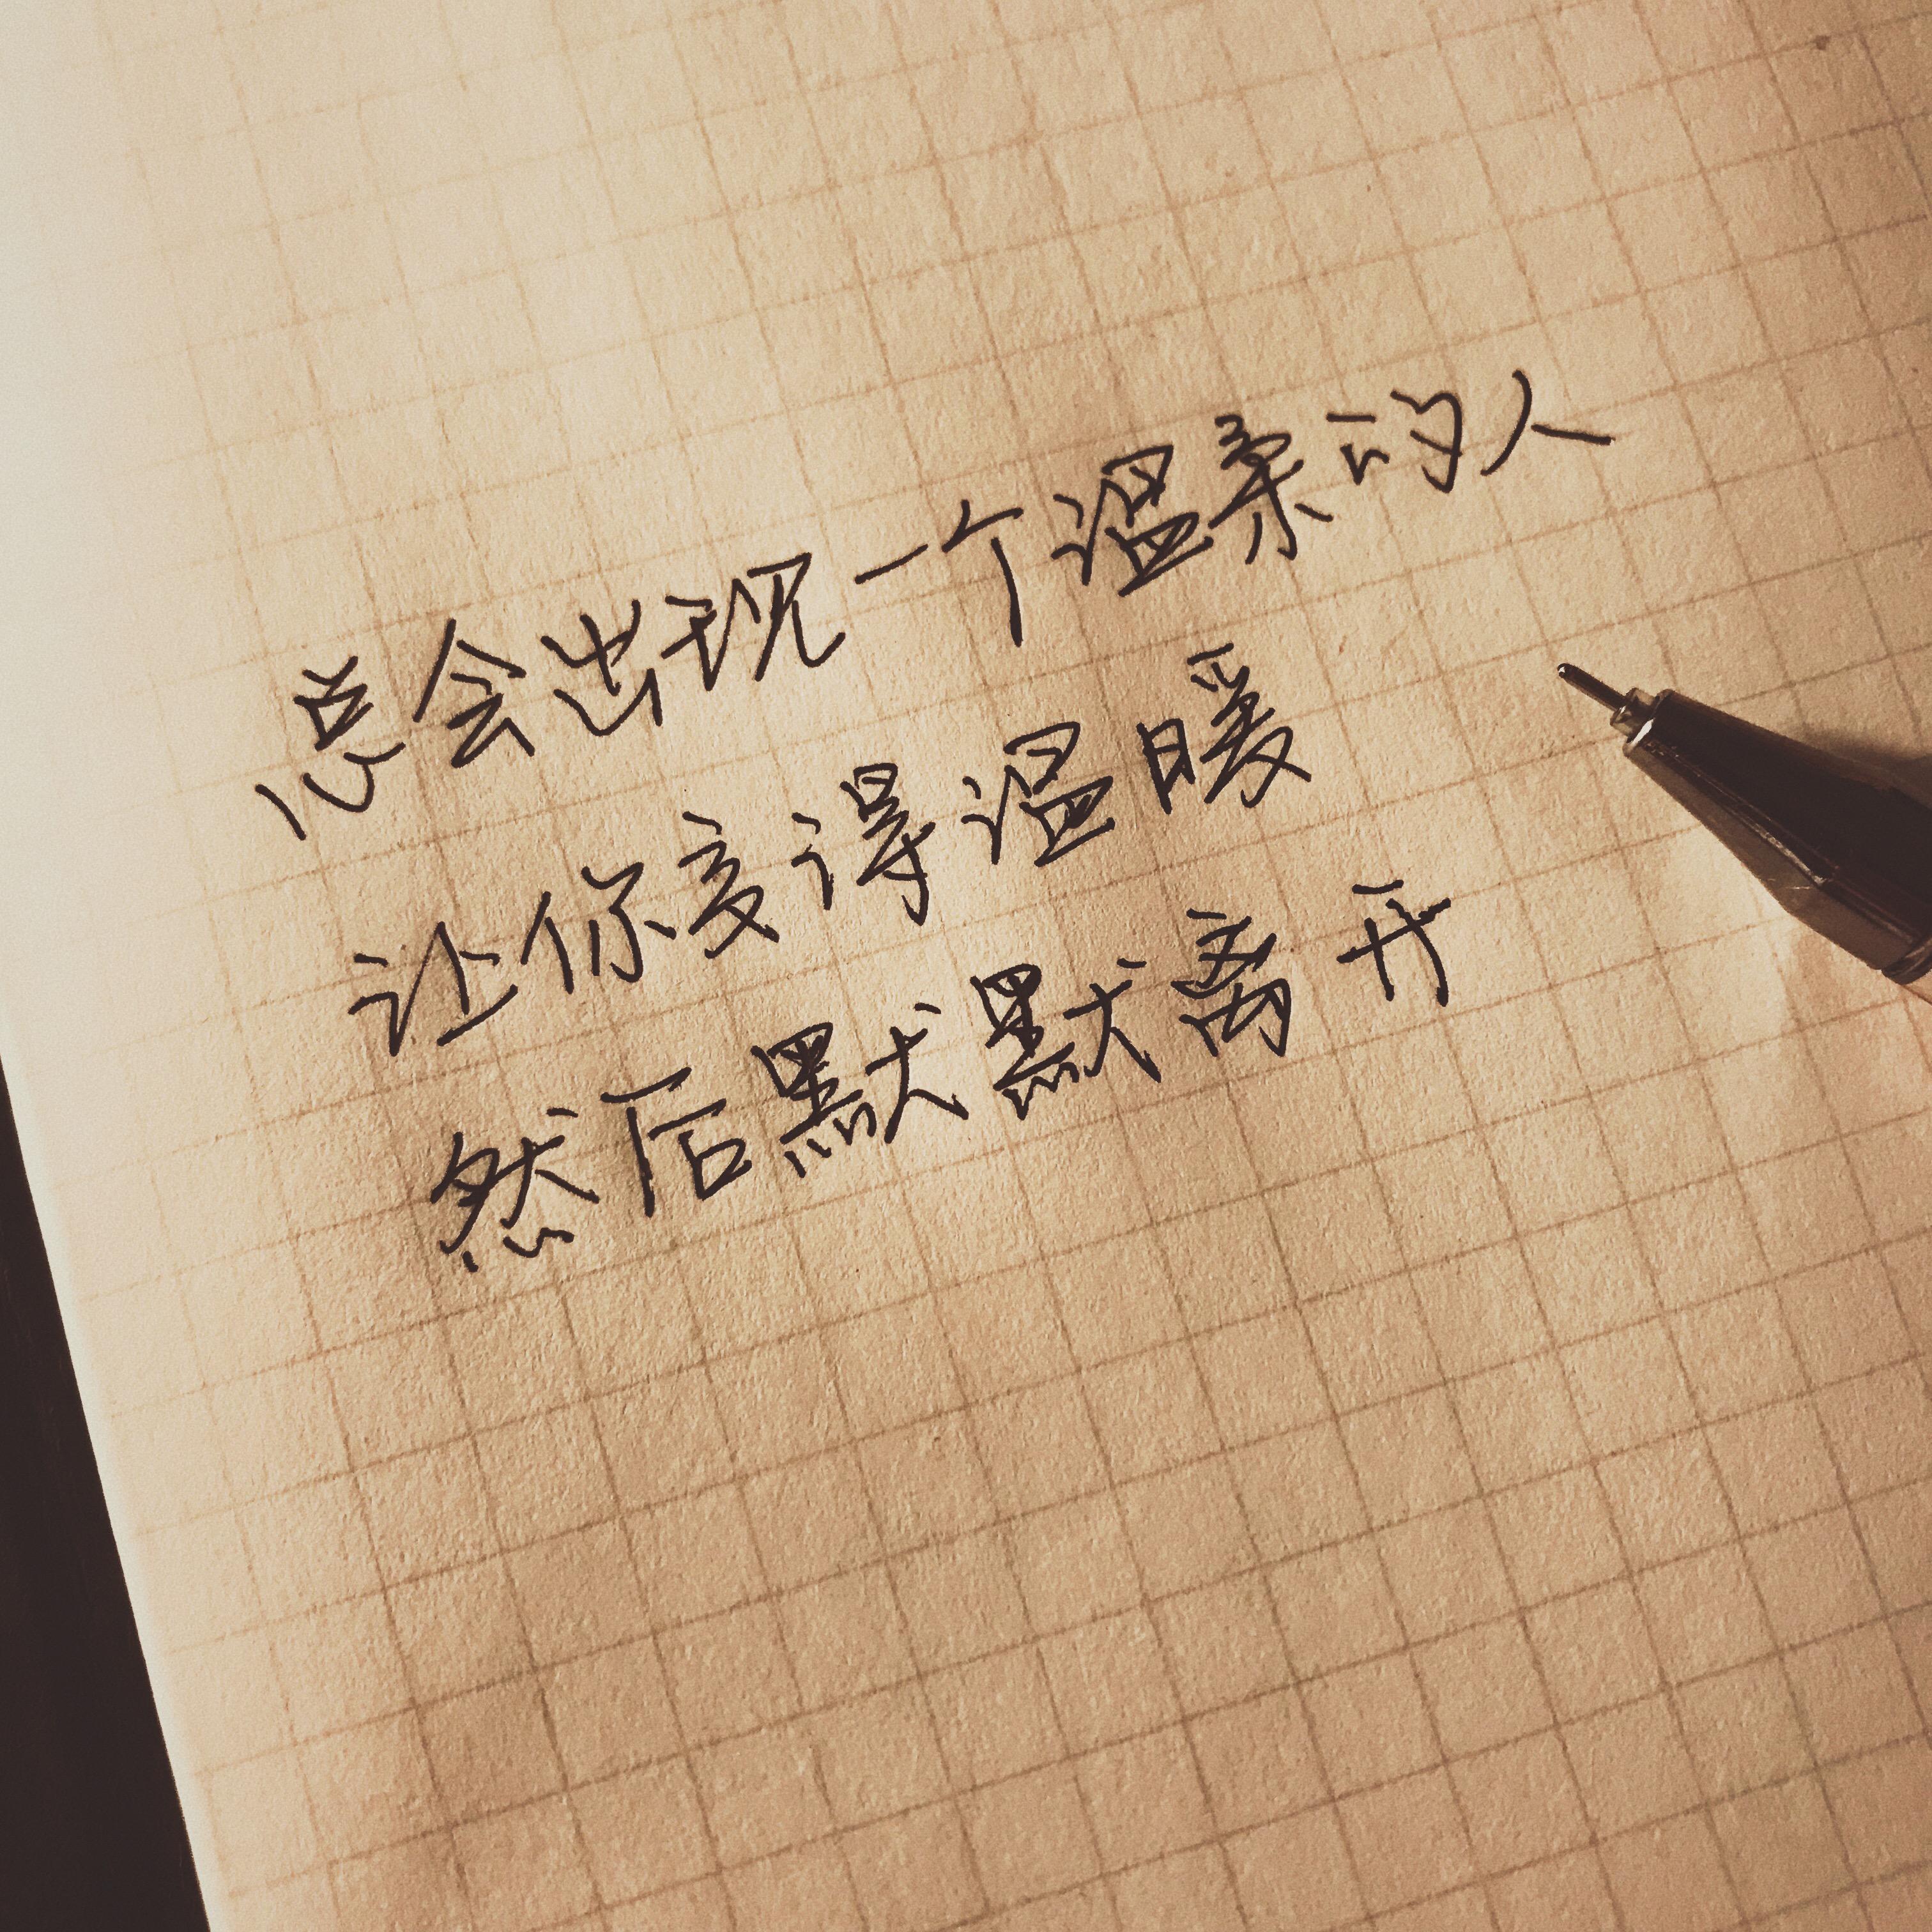 总会出现一个温柔的人
让你变得温暖
然后默默离开